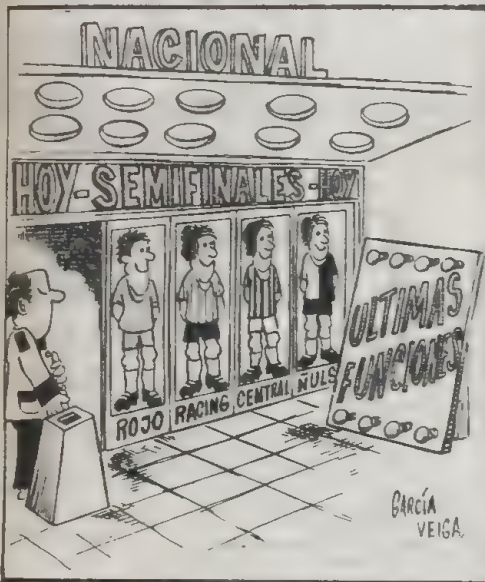 NACIONAL
HOY-SEMIFINALES-HOY
ROJO RACING CENTRAL NULS
ULTIMAS
FUNCIONES
GARCÍA
VEIGA